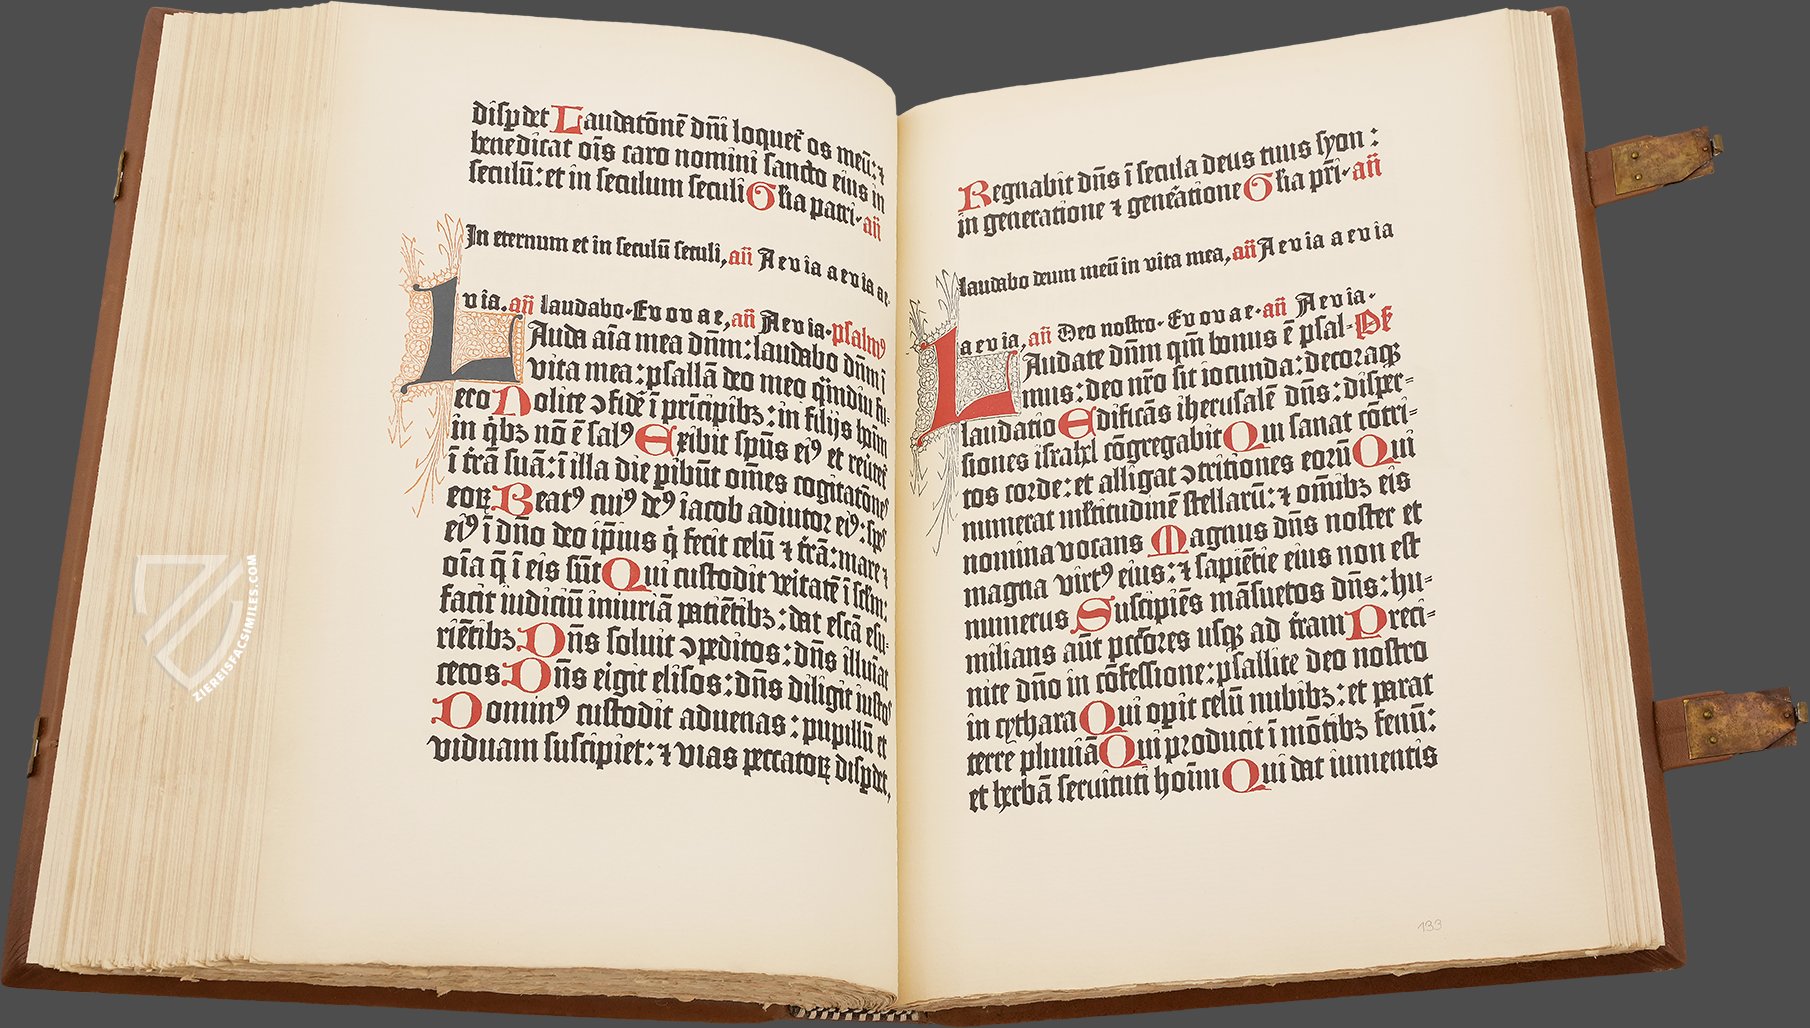 dispdet Laudatōnē dñi loquet̄ os meū: ⁊
benedicat oīs caro nomini sancto eius in
seculū: et in seculum seculi Gl̄ia patri · añ
In eternum et in seculū seculi, añ A e v ia a e v ia ae-
v ia. añ laudabo · Ev ov a e, añ A e v ia · psalmꝰ
LAuda aīa mea dñm: laudabo dñm ī
vita mea: psallā deo meo q̄mdiu fu-
ero Nolite ↄfidē ī prīcipibꝫ: in filijs hoīm
in q̄bꝫ nō ē salꝰ Exibit spūs eiꝰ et reūtet̄
ī t̄rā suā: ī illa die pibūt om̄es cogitatōneˢ
eoꝝ Beatꝰ cuiꝰ deꝰ iacob adiutor eiꝰ: spes
eiꝰ ī dño deo ip̄ius q̄ fecit celū ⁊ t̄rā: mare ⁊
oīa q̄ ī eis sūt Qui custodit veritatē ī sc̄lm:
facit iudiciū iniuriā patiētibꝫ: dat escā esu-
riētibꝫ Dñs soluit ↄpeditos: dñs illuīat
cecos Dñs eigit elisos: dñs diligit iustoˢ
Dominꝰ custodit aduenas: pupillū et
viduam suscipiet: ⁊ vias peccatoꝝ dispdet,
Regnabit dñs ī secula deus tuus syon:
in generatione ⁊ gene͛atione Gl̄ia pr̄i · añ
laudabo deum meū in vita mea, añ A e v ia a e v ia
a e v ia, añ Deo nostro · Ev ov a e · añ A e v ia ·
LAudate dñm qm̄ bonus ē psal- Pˢ
mus: deo nr̄o sit iocunda: decoraqꝫ
laudatio Edificās iherusalē dñs: disper-
siones israhl̄ cōgregabit Qui sanat cōtri-
tos corde: et alligat ↄtritiones eorū Qui
numerat ml̄titudinē stellarū: ⁊ om̄ibꝫ eis
nomina vocans Magnus dñs noster et
magna virtꝰ eius: ⁊ sapiētie eius non est
numerus Suscipiēs māsuetos dñs: hu-
milians aūt pctōres usqꝫ ad t̄ram Preci-
nite dño in cōfessione: psallite deo nostro
in cythara Qui opit celū nubibꝫ: et parat
terre pluuiā Qui producit ī mōtibꝫ fenū:
et herbā seruituti hoīm Qui dat iumentis
133
ZIEREISFACSIMILES.COM